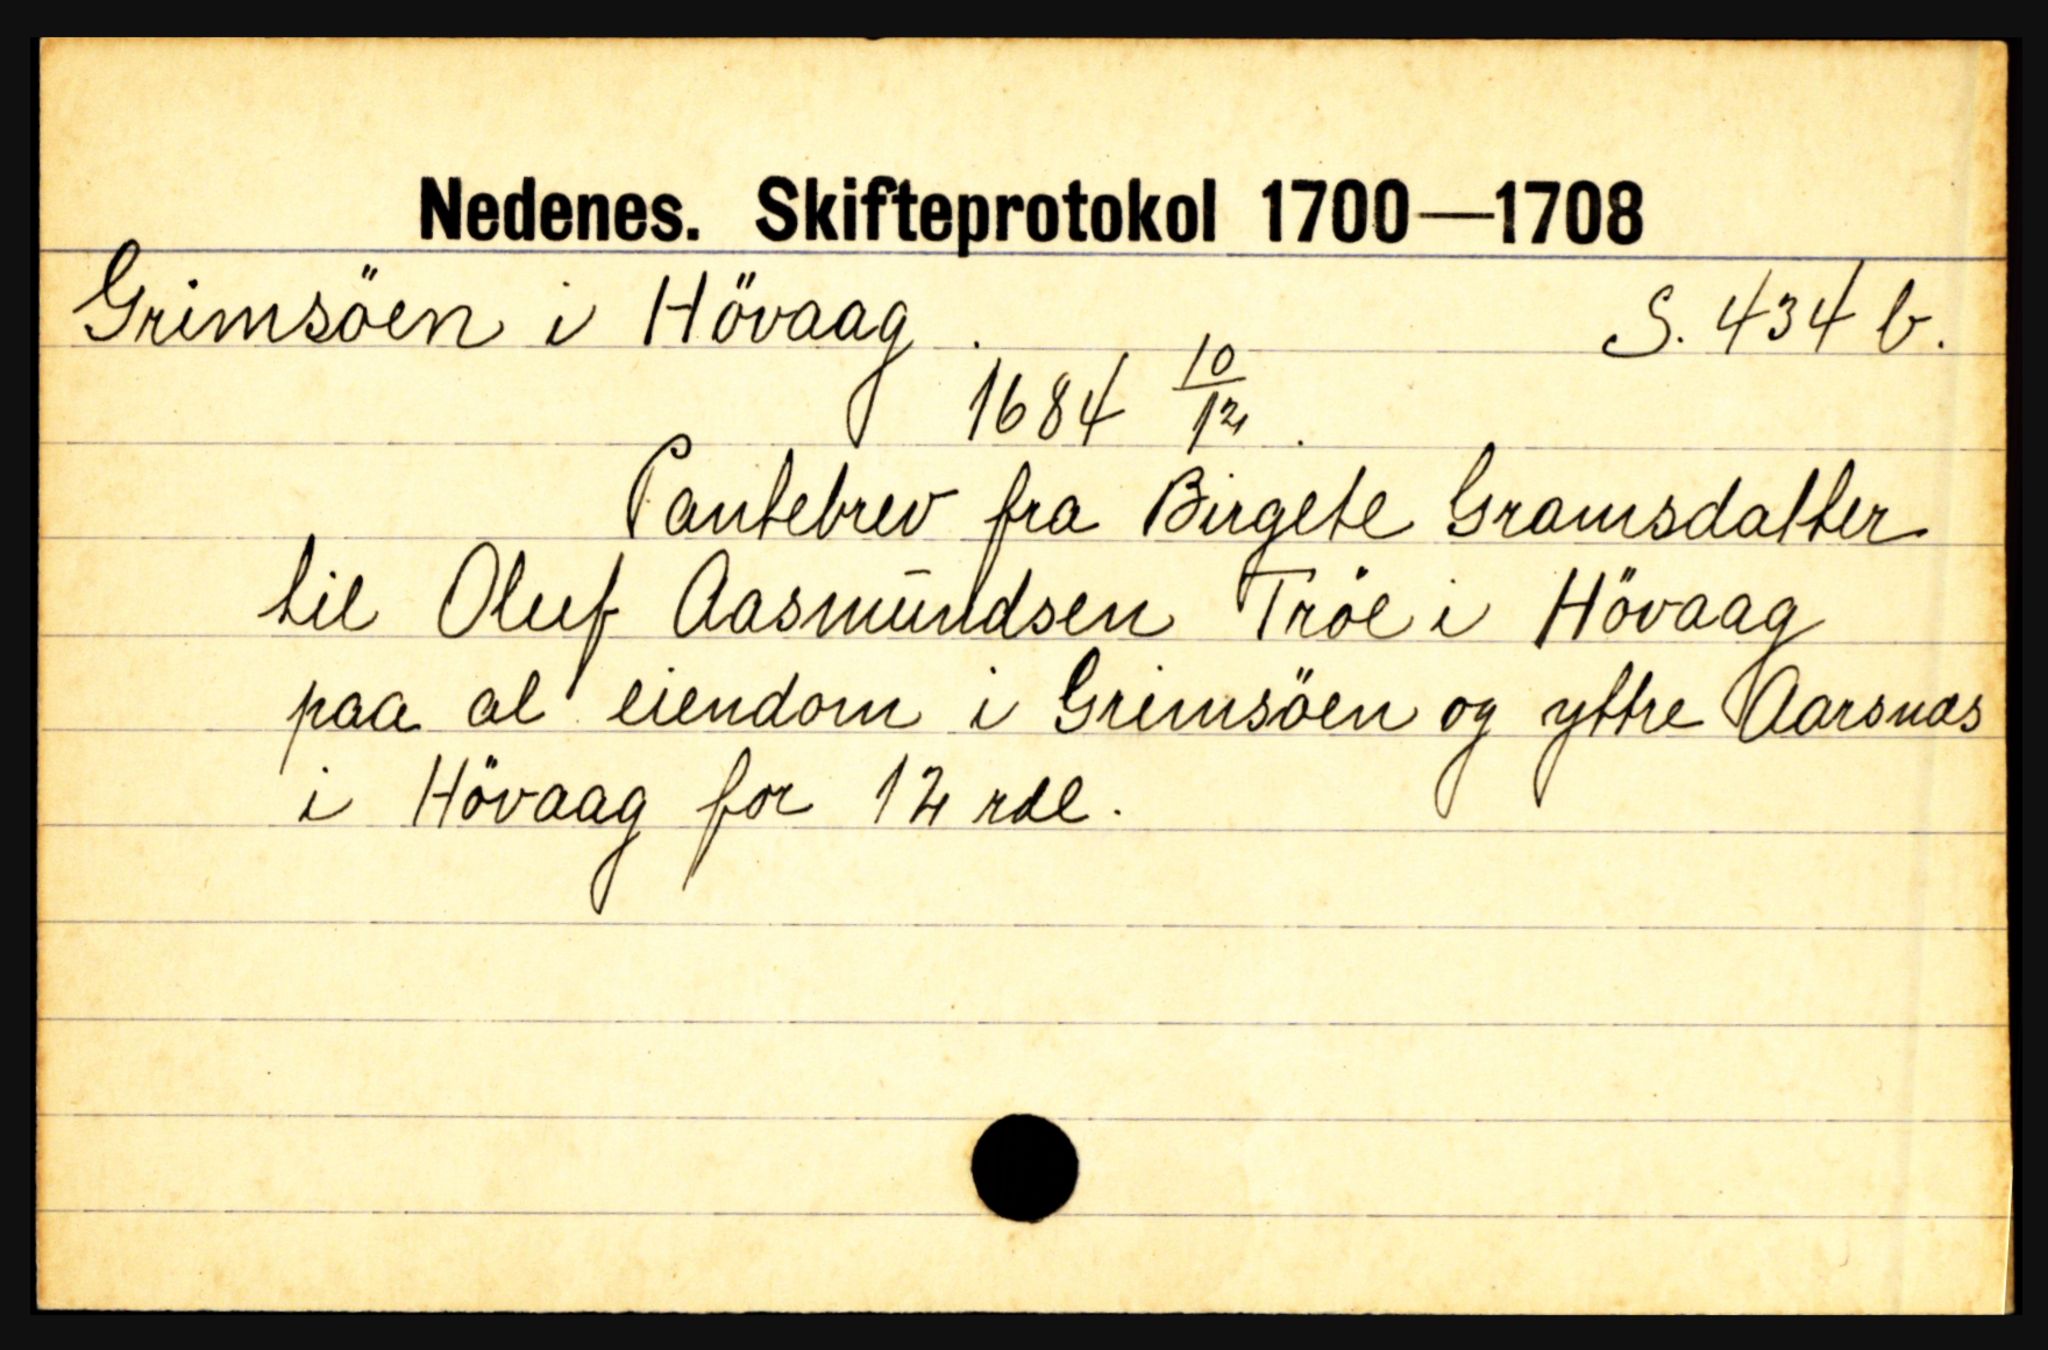 Nedenes. Skifteprotokol 1700—1708
Grimsöen i Hövaag. S. 434 b.
1684 10/12.
Pantebrev fra Birgete Gramsdatter
til Oluf Aasmundsen Tröe i Hövaag
paa al eiendom i Grimsöen og yttre Aarsnæs
i Hövaag for 12 rdl.